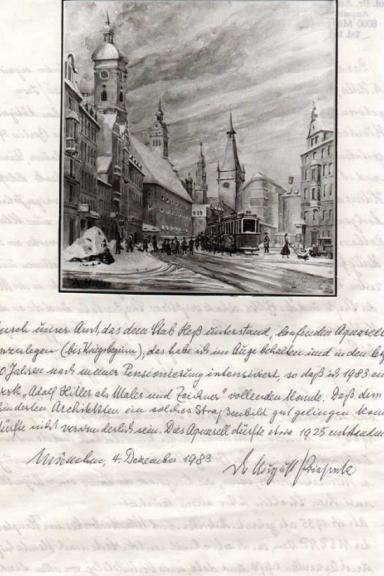 durch unser Amt, das dem Stab Heß unterstand, laufenden Aquarelle
anzulegen (bis Kriegsbeginn), das habe ich im Auge behalten und in den
0 Jahren nach meiner Pensionierung intensiviert, so daß ich 1983 ein
werk „Adolf Hitler als Maler und Zeichner" vollenden konnte. Daß dem
hinderten Architekten ein solches Straßenbild gut gelingen konn
dürfte nicht verwunderlich sein. Das Aquarell dürfte etwa 1925 entstanden
München, 4. Dezember 1983
Dr August Priesack